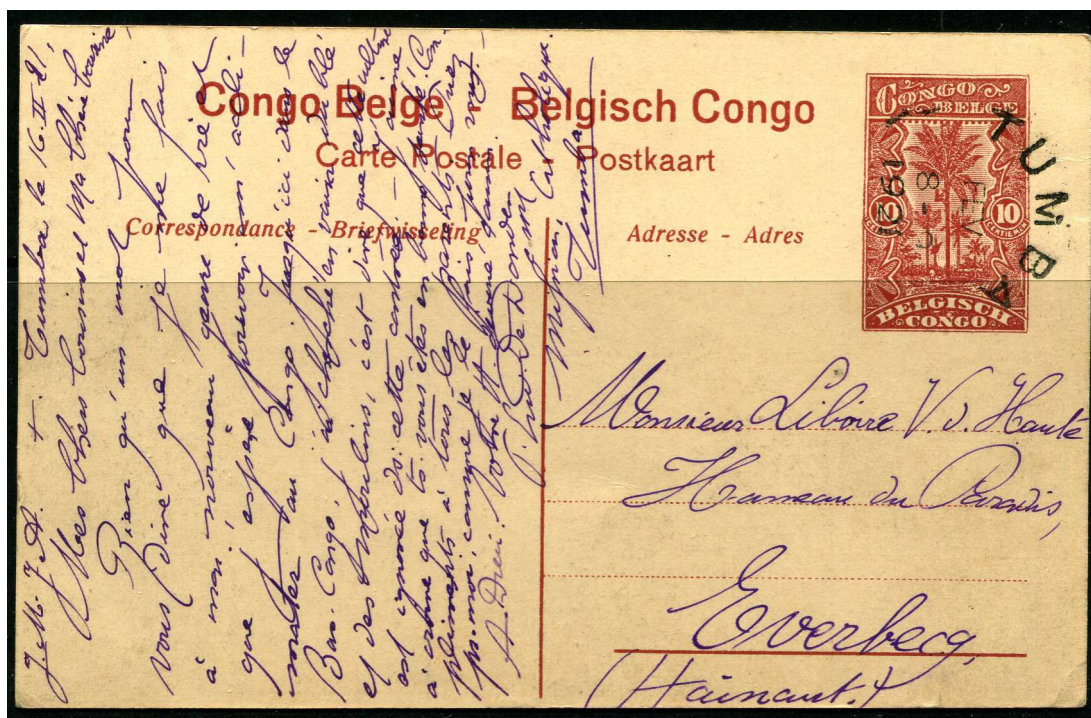 Congo Belge - Belgisch Congo
Carte Postale - Postkaart
Correspondance - Briefwisseling
Adresse - Adres
CONGO BELGE
10 10
CENTIEMEN
BELGISCH CONGO
TUMBA
1921
J. M. J. A. + Tumba le 16. II. 21.
Mes chers cousins et Ma chère cousine
Rien qu'un mot pour
vous dire que je me fais
à mon nouveau genre de vie et
que j'espère pouvoir m'accli-
mater au Congo. Jusqu'ici dans le
Bas-Congo, j'ai cherché en vain du blé
et des moulins, c'est dire que cette culture
est ignorée ds. cette contrée. J'aime
à croire que ts. vous êtes en bonne santé. Com-
pliments à tous les parents. Priez
pr. moi, comme je le fais pour vous.
A Dieu. Votre
De Doncker
Mission Catholique
Tumba
Monsieur Liboire V. d. Haute
Hameau du Paradis,
Everbecq,
(Hainaut.)